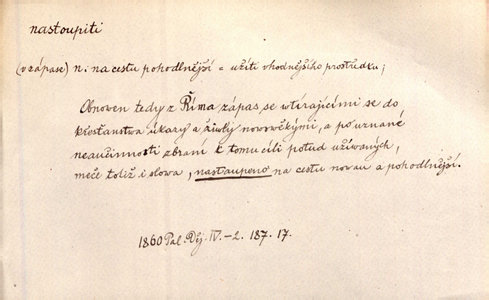 nastoupiti
(v zápase) n. na cestu pohodlnější = užíti vhodnějšího prostředku;
Obnoven tedy z Říma zápas se wtírajícími se do
křesťanstwa úkazy a žiwly nowowěkými, a po uznané
neaučinnosti zbraní k tomu cíli potud užíwaných,
meče totiž i slowa, nastaupeno na cestu nowau a pohodlnější.
1860 Pal. Děj. IV.-2. 187. 17.